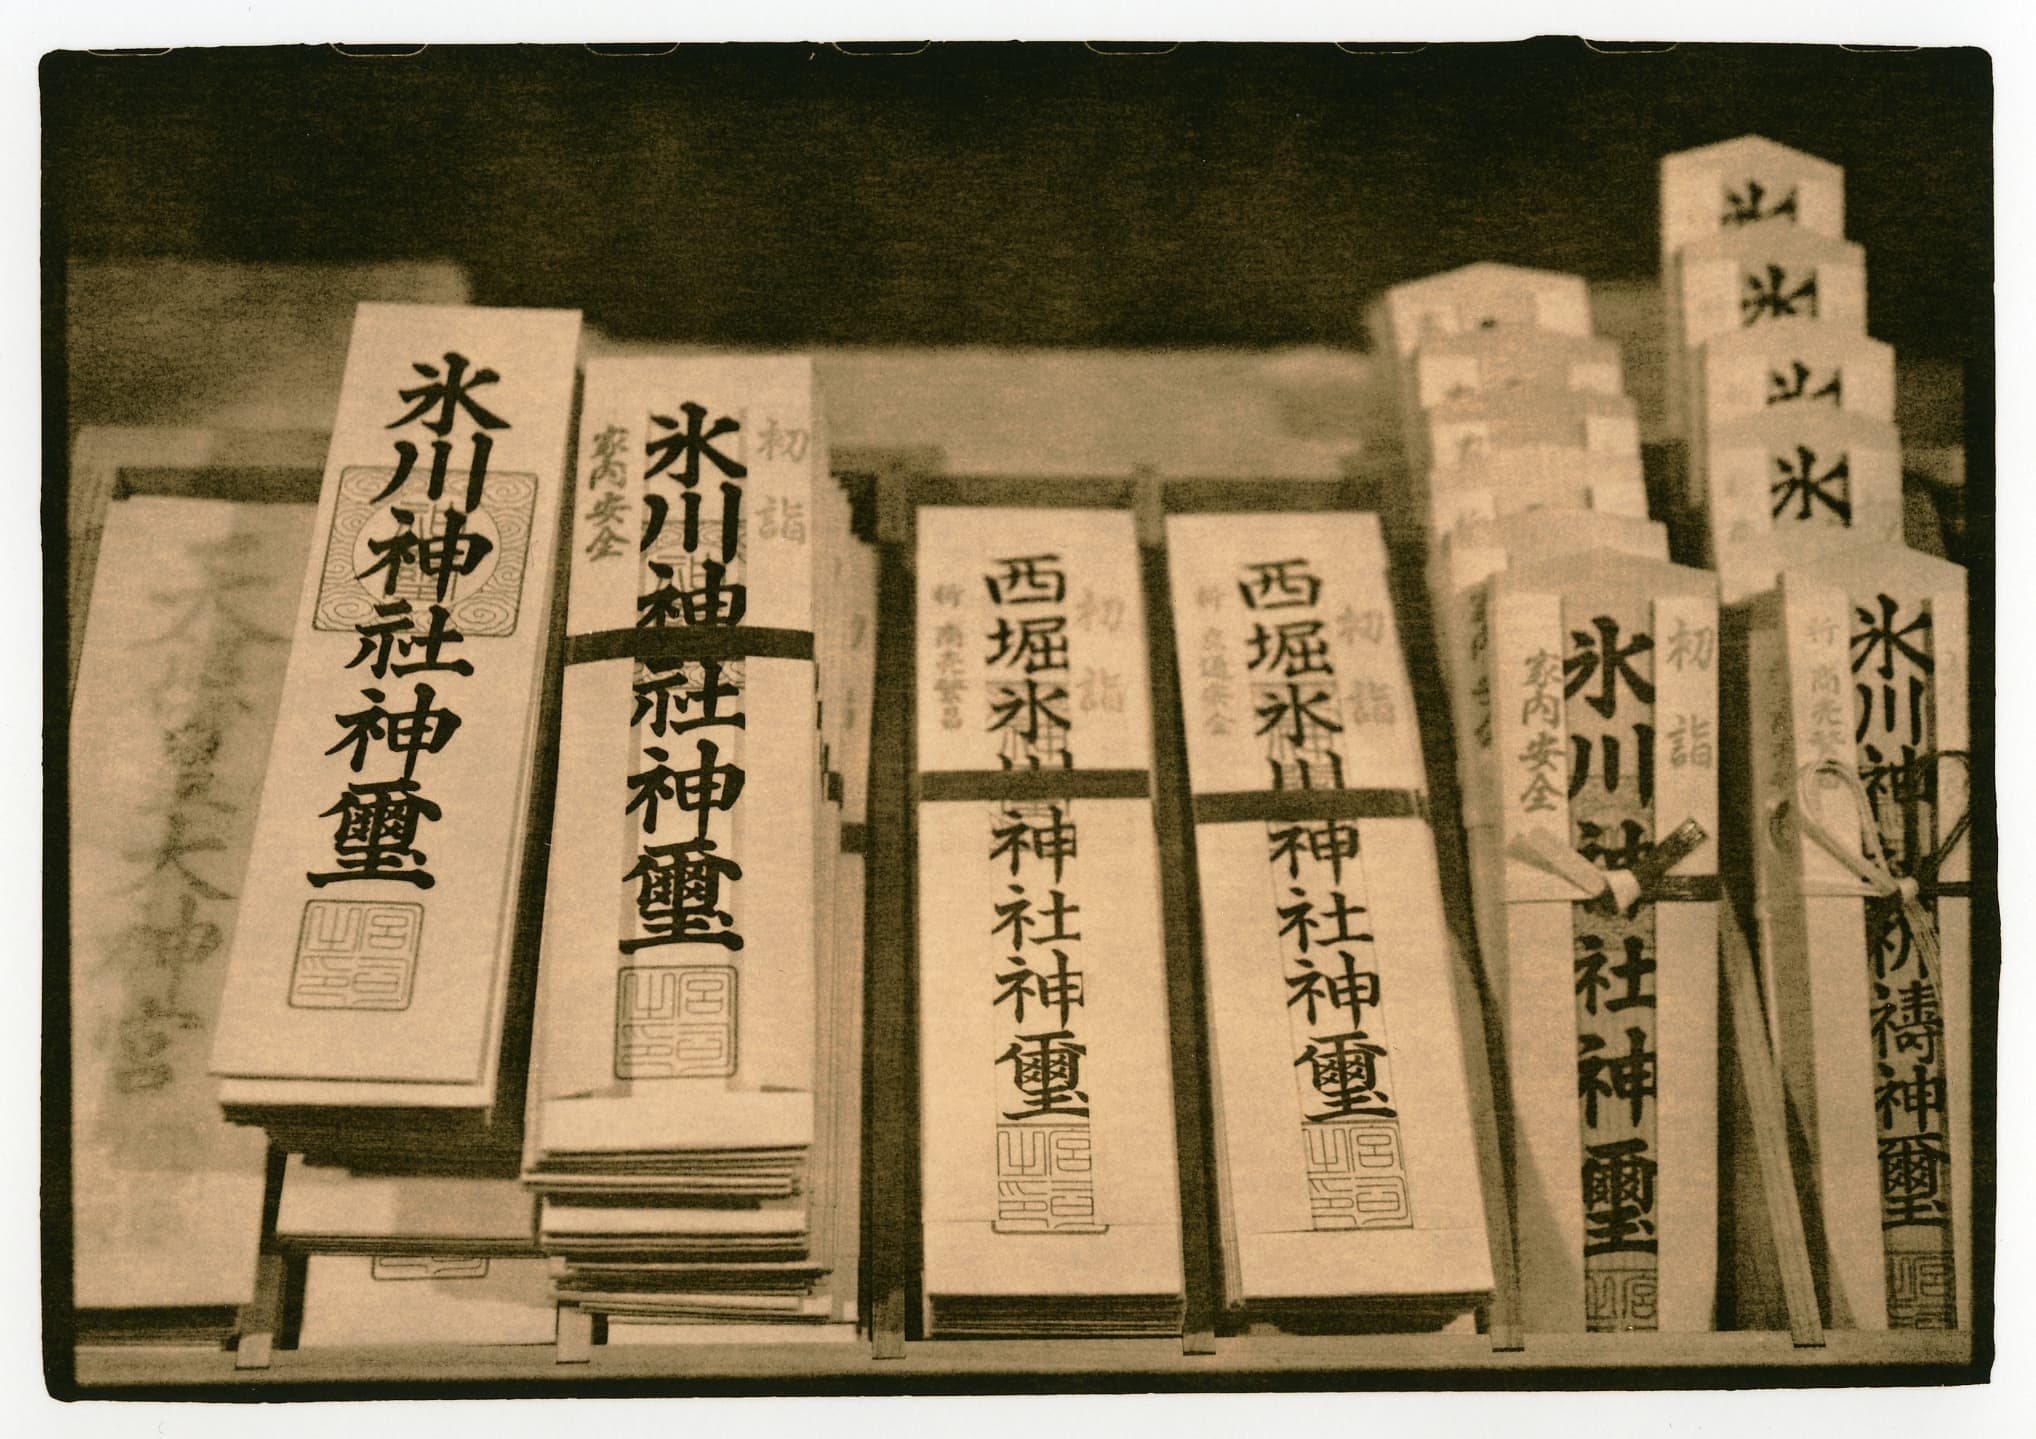 天照皇大神宮
氷川神社神璽
初詣
氷川神社神璽
家内安全
初詣
西堀氷川神社神璽
商売繁昌
初詣
西堀氷川神社神璽
交通安全
氷
氷
初詣
氷川神社神璽
家内安全
氷川神社祈祷神璽
商売繁昌